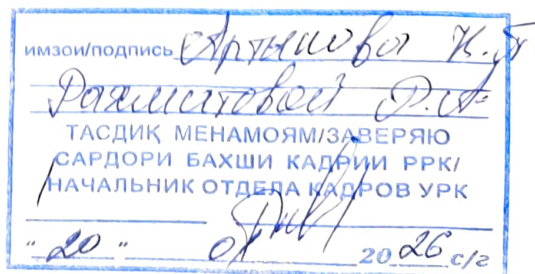 имзои/подпись Артыкова К.
Рахматовой Р.А.
ТАСДИҚ МЕНАМОЯМ/ЗАВЕРЯЮ
САРДОРИ БАХШИ КАДРИИ РРК/
НАЧАЛЬНИК ОТДЕЛА КАДРОВ УРК
"20" 01 2026 с/г